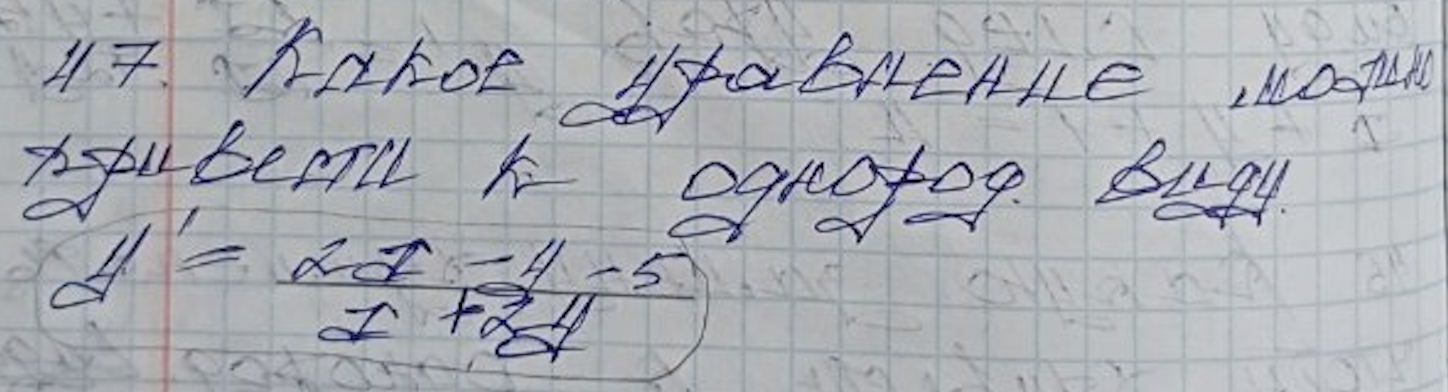 47. Какое уравнение можно
привести к однород. виду.
y' = \frac{2x - y - 5}{x + 2y}